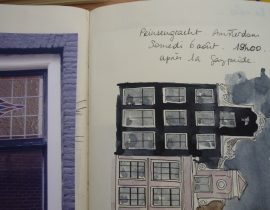 Prinsengracht Amsterdam
Samedi 6 août 18h00.
après la Gaypride.